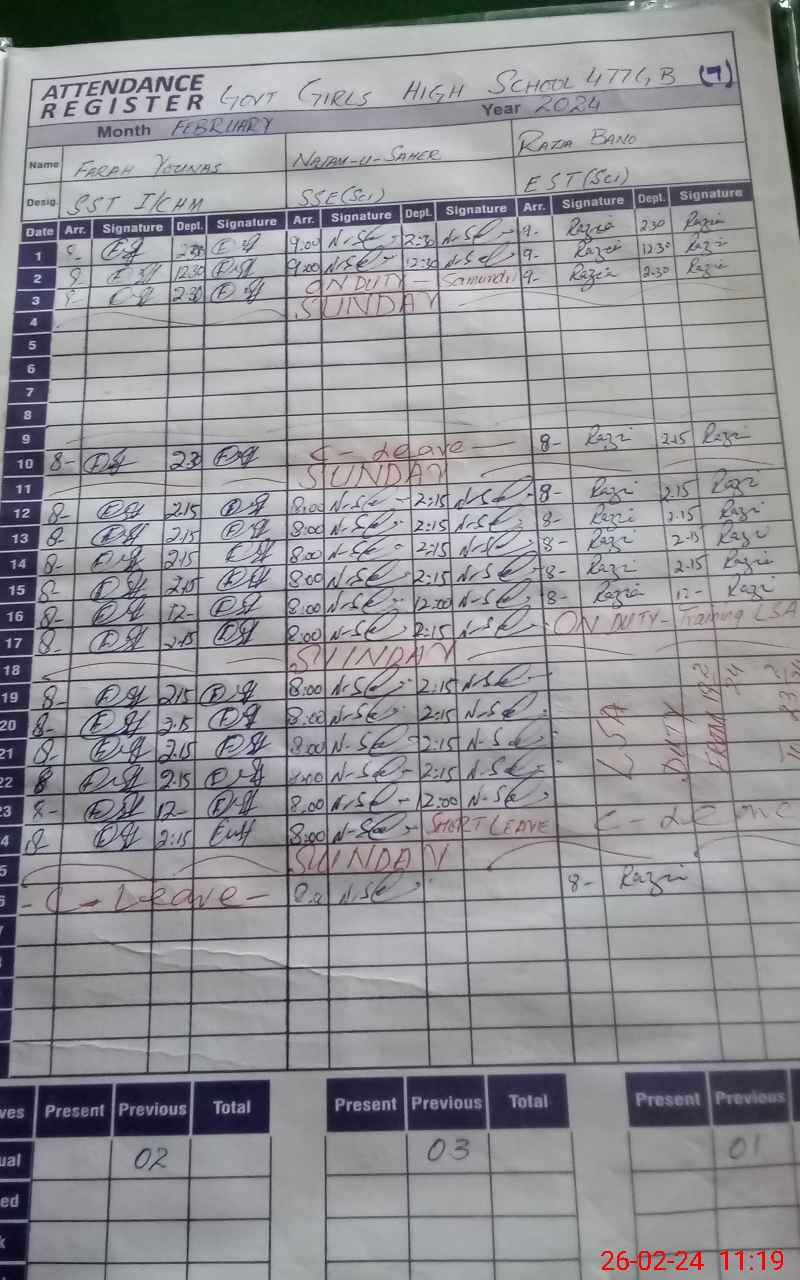 ATTENDANCE REGISTER GOVT GIRLS HIGH SCHOOL 477GB (7)
Month FEBRUARY Year 2024
Name FARAH YOUNAS NAJAM-U-SAHER RAZIA BANO
Desig. SST I/CHM SSE(SCI) EST(SCI)
Date Arr. Signature Dept. Signature Arr. Signature Dept. Signature Arr. Signature Dept. Signature
1 9- 2:30 9:00 N-Se 2:30 N-Se 9- Razia 2:30 Razi
2 9- 12:30 9:00 N-Se 12:30 N-Se 9- Razia 12:30 Razi
3 9- 2:30 ON DUTY - Samundri 9- Razia 2:30 Razi
4 SUNDAY
5
6
7
8
9
10 8- 2:30 C- Leave 8- Razi 2:15 Razi
11 SUNDAY
12 8- 2:15 8:00 N-Se 2:15 N-Se 8- Razi 2:15 Razi
13 8- 2:15 8:00 N-Se 2:15 N-Se 8- Razi 2:15 Razi
14 8- 2:15 8:00 N-Se 2:15 N-Se 8- Razi 2:15 Razi
15 8- 2:15 8:00 N-Se 2:15 N-Se 8- Razi 2:15 Razi
16 8- 12- 8:00 N-Se 12:00 N-Se 8- Razia 12- Razi
17 8- 2:15 8:00 N-Se 2:15 N-Se ON DUTY - Training LSA
18 SUNDAY
19 8- 2:15 8:00 N-Se 2:15 N-Se LSA DUTY FROM 19-2
20 8- 2:15 8:00 N-Se 2:15 N-Se
21 8- 2:15 8:00 N-Se 2:15 N-Se
22 8 2:15 8:00 N-Se 2:15 N-Se
23 8- 12- 8:00 N-Se 12:00 N-Se
4 8- 2:15 8:00 N-Se SHORT LEAVE C-
5 SUNDAY
6 - C- Leave - N-Se 8- Razi
ves Present Previous Total Present Previous Total Present Previous
ual 02 03 01
ed
k
26-02-24 11:19